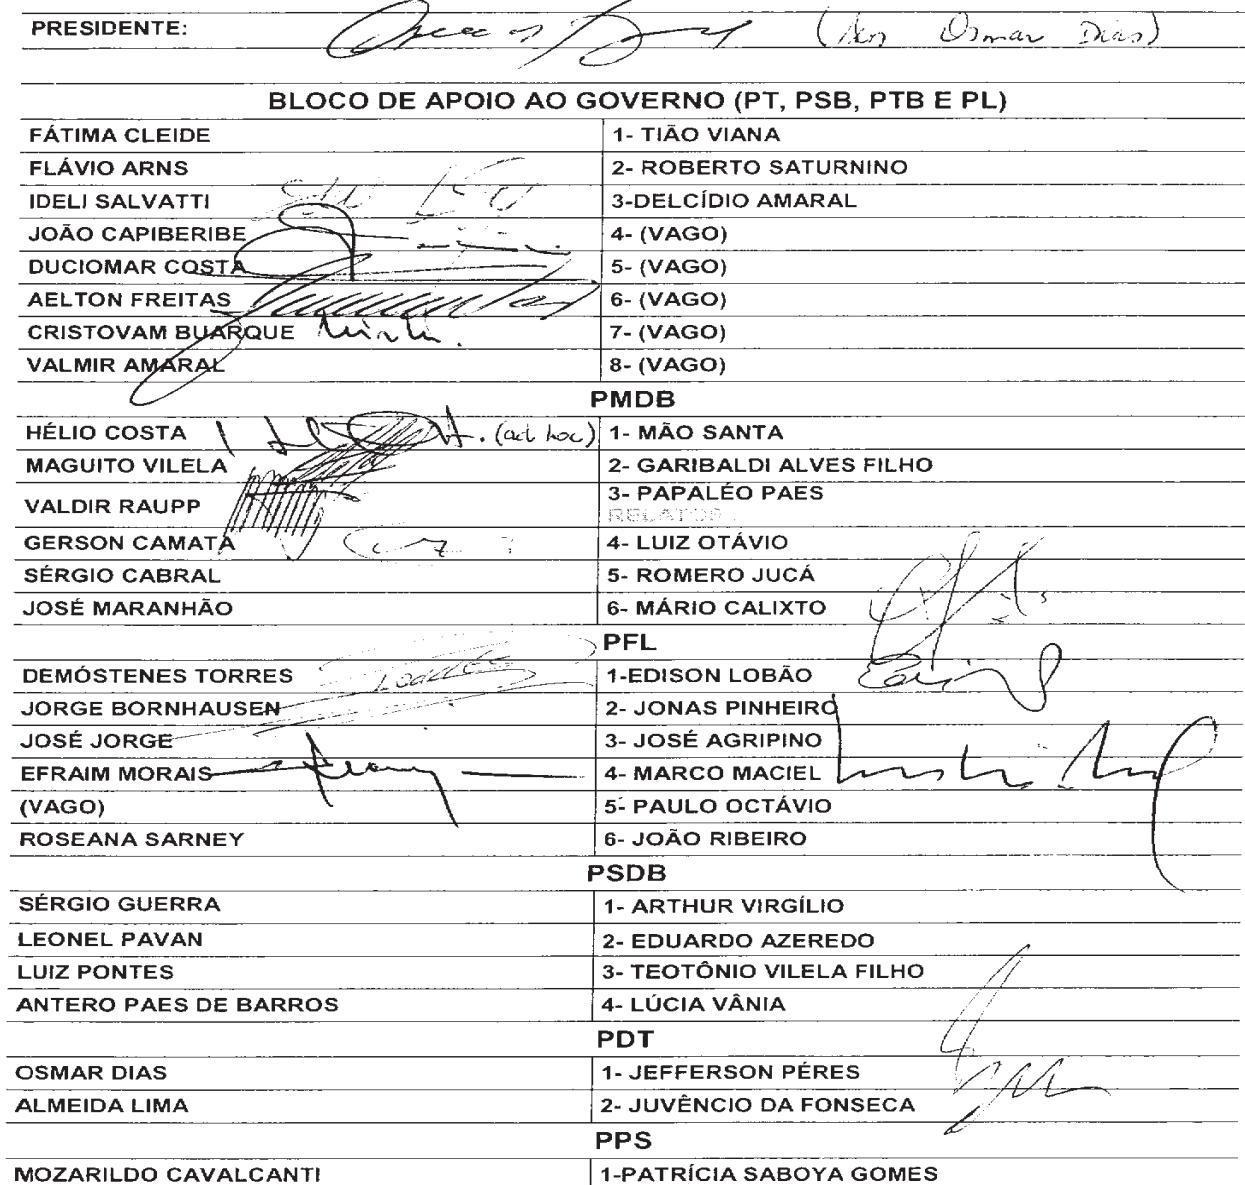 PRESIDENTE: (Sen Osmar Dias)
BLOCO DE APOIO AO GOVERNO (PT, PSB, PTB E PL)
FÁTIMA CLEIDE 1- TIÃO VIANA
FLÁVIO ARNS 2- ROBERTO SATURNINO
IDELI SALVATTI 3-DELCÍDIO AMARAL
JOÃO CAPIBERIBE 4- (VAGO)
DUCIOMAR COSTA 5- (VAGO)
AELTON FREITAS 6- (VAGO)
CRISTOVAM BUARQUE 7- (VAGO)
VALMIR AMARAL 8- (VAGO)
PMDB
HÉLIO COSTA (ad hoc) 1- MÃO SANTA
MAGUITO VILELA 2- GARIBALDI ALVES FILHO
VALDIR RAUPP 3- PAPALÉO PAES
RELATOR
GERSON CAMATA 4- LUIZ OTÁVIO
SÉRGIO CABRAL 5- ROMERO JUCÁ
JOSÉ MARANHÃO 6- MÁRIO CALIXTO
PFL
DEMÓSTENES TORRES 1-EDISON LOBÃO
JORGE BORNHAUSEN 2- JONAS PINHEIRO
JOSÉ JORGE 3- JOSÉ AGRIPINO
EFRAIM MORAIS 4- MARCO MACIEL
(VAGO) 5- PAULO OCTÁVIO
ROSEANA SARNEY 6- JOÃO RIBEIRO
PSDB
SÉRGIO GUERRA 1- ARTHUR VIRGÍLIO
LEONEL PAVAN 2- EDUARDO AZEREDO
LUIZ PONTES 3- TEOTÔNIO VILELA FILHO
ANTERO PAES DE BARROS 4- LÚCIA VÂNIA
PDT
OSMAR DIAS 1- JEFFERSON PÉRES
ALMEIDA LIMA 2- JUVÊNCIO DA FONSECA
PPS
MOZARILDO CAVALCANTI 1-PATRÍCIA SABOYA GOMES